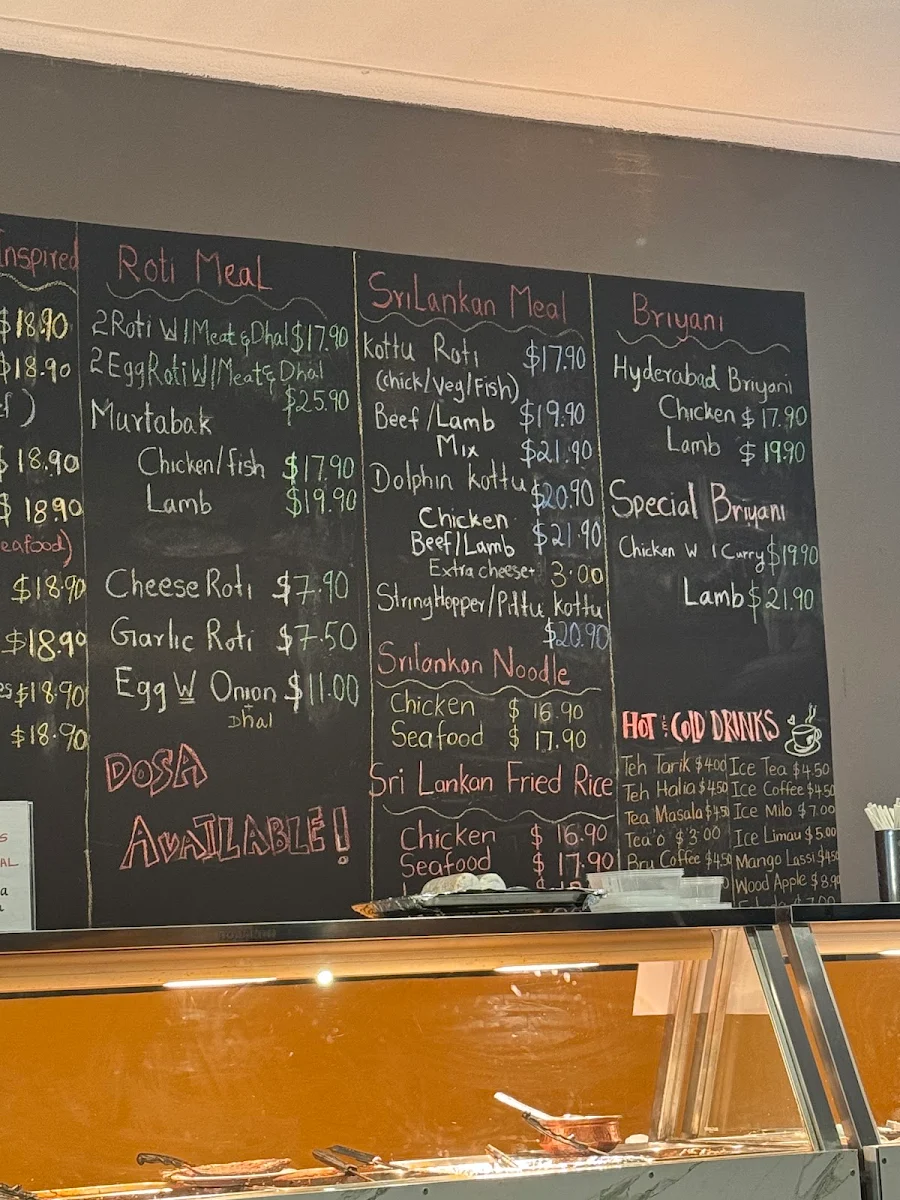 Inspired
$18.90
$18.90
)
$18.90
$18.90
eafood)
$18.90
$18.90
es $18.90
$18.90
Roti Meal
2 Roti W/Meat & Dhal $17.90
2 Egg Roti W/Meat & Dhal
$25.90
Murtabak
Chicken/fish $17.90
Lamb $19.90
Cheese Roti $7.90
Garlic Roti $7.50
Egg W Onion $11.00
+
Dhal
DOSA
AVAILABLE!
SriLankan Meal
Kottu Roti $17.90
(chick/Veg/Fish)
Beef/Lamb $19.90
Mix $21.90
Dolphin kottu
Chicken $20.90
Beef/Lamb $21.90
Extra cheese+ 3.00
StringHopper/Pittu kottu
$20.90
Srilankan Noodle
Chicken $ 16.90
Seafood $ 17.90
Sri Lankan Fried Rice
Chicken $ 16.90
Seafood $ 17.90
Briyani
Hyderabad Briyani
Chicken $ 17.90
Lamb $ 19.90
Special Briyani
Chicken W / Curry $19.90
Lamb $ 21.90
HOT & COLD DRINKS
Teh Tarik $4.00
Teh Halia $4.50
Tea Masala $4.5
Tea'o $3.00
Bru Coffee $4.50
Ice Tea $4.50
Ice Coffee $4.50
Ice Milo $7.00
Ice Limau $5.00
Mango Lassi $4.50
Wood Apple $8.9